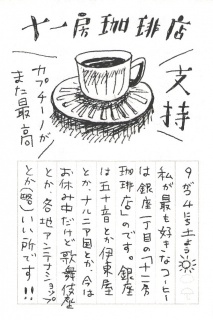 十一房珈琲店
支持
カプチーノが
また最高
9がつ4にち土よう
私が最も好きなコーヒー
は銀座一丁目の「十一房
珈琲店」のです。銀座
は五十音とか伊東屋
とか、ナルニア国とか、今は
お休み中だけど歌舞伎座
とか、各地アンテナショップ
とか(略)いい所です!!